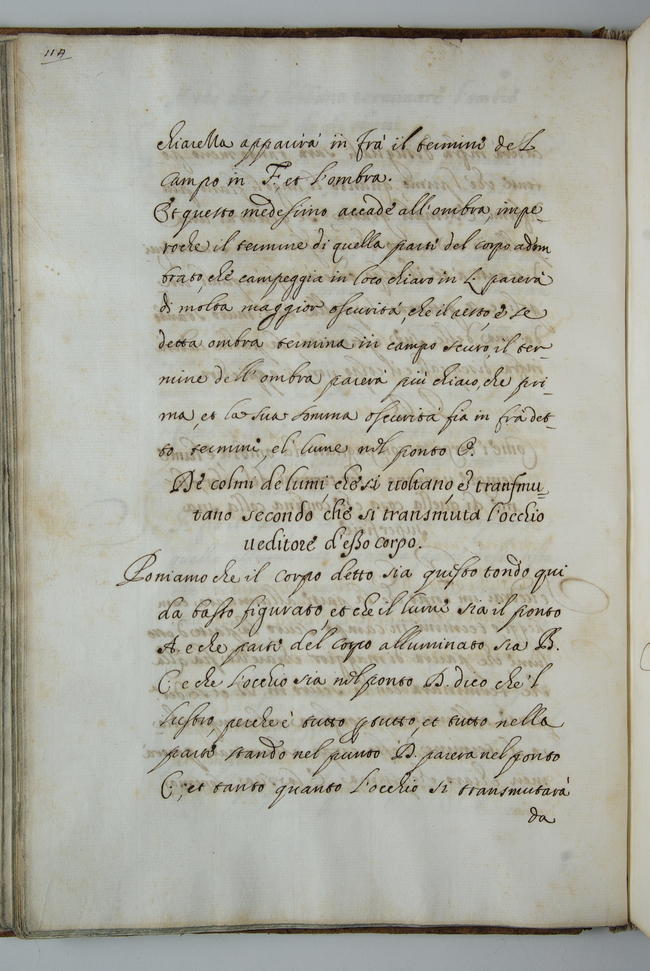 114
chiarella apparirà in frà il termine del
campo in F, et l'ombra.
Et questo medesimo accade all'ombra, impe-
roche il termine di quella parte del corpo adom
brato, che campeggia in loco chiaro in L. parerà
di molta maggior oscurità, che il resto, e se
detta ombra termina in campo scuro, il ter-
mine dell'ombra parerà più chiaro, che pri-
ma, et la sua somma oscurità fia in frà det-
to termine, e'l lume nel ponto C.
De colmi de lumi, che si voltano, e transmu-
tano secondo che si transmuta l'occhio
veditore d'esso corpo.
Poniamo che il corpo detto sia questo tondo qui
da basso figurato, et che il lume sia il ponto
A. e che parte del corpo alluminato sia B.
C. e che l'occhio sia nel ponto D. dico che'l
lustro, perche è tutto p tutto, et tutto nella
parte stando nel punto D. parera nel ponto
C; et tanto quanto l'occhio si transmutarà
da